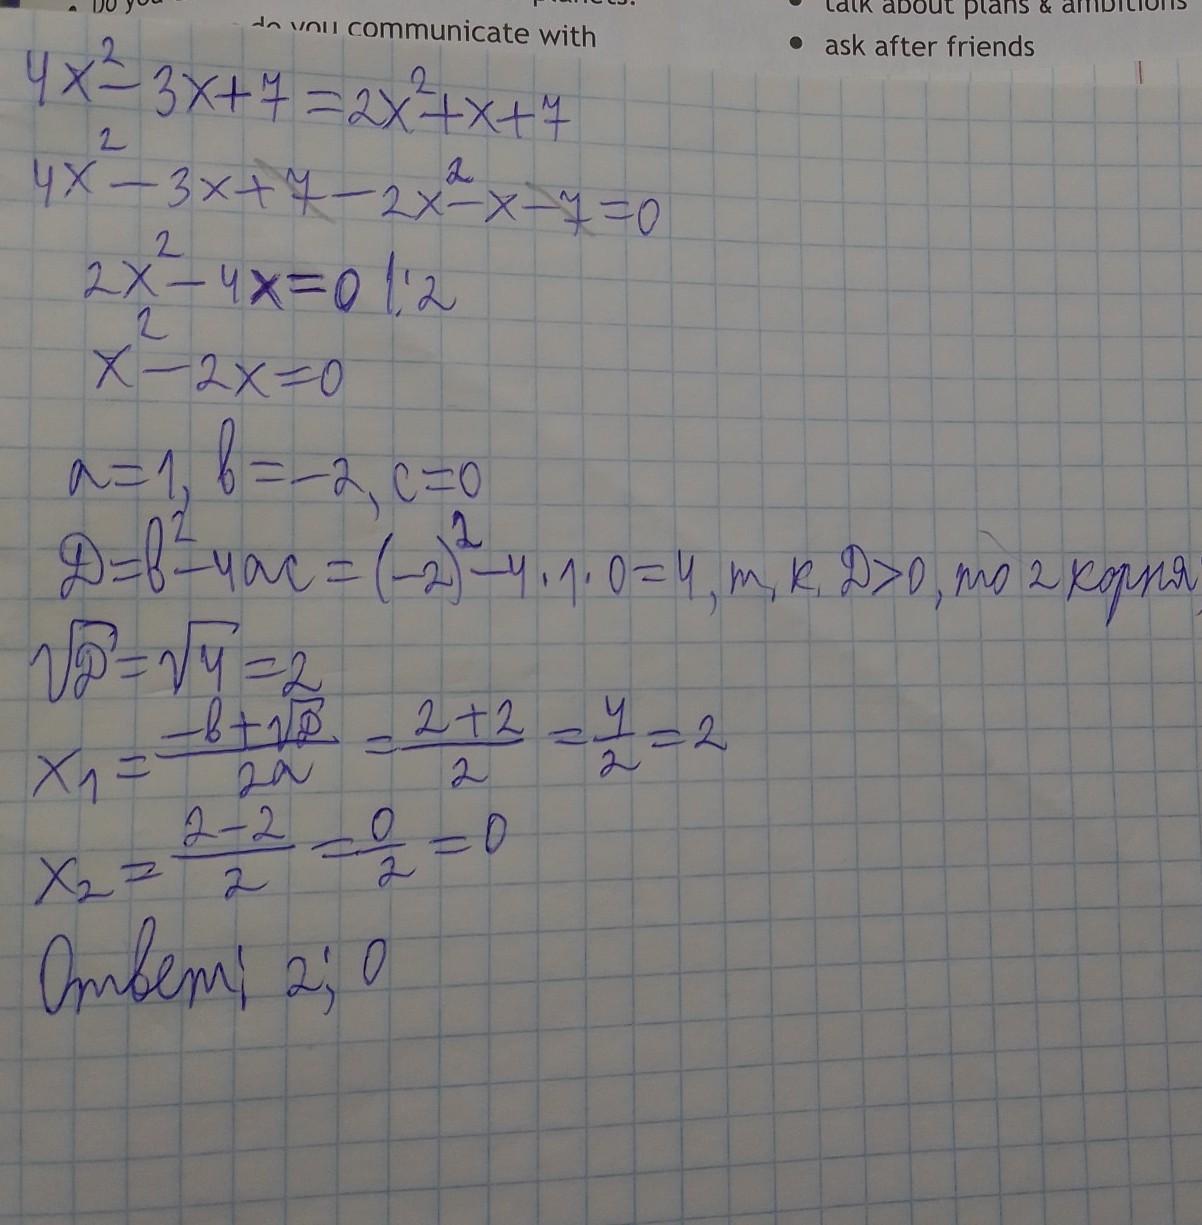 Do you
do you communicate with
talk about plans & ambitions
• ask after friends
4x² - 3x + 7 = 2x² + x + 7
4x² - 3x + 7 - 2x² - x - 7 = 0
2x² - 4x = 0 |:2
x² - 2x = 0
a = 1, b = -2, c = 0
Д = b² - 4ac = (-2)² - 4 · 1 · 0 = 4, т.к. Д > 0, то 2 корня
√Д = √4 = 2
x₁ = (-b + √Д)/2a = (2 + 2)/2 = 4/2 = 2
x₂ = (2 - 2)/2 = 0/2 = 0
Ответ: 2; 0